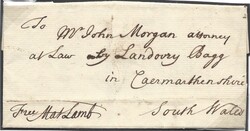 To
Mr John Morgan attorney
at Law by Landovry Bagg
in Caermarthenshire
Free Mat Lamb South Wales